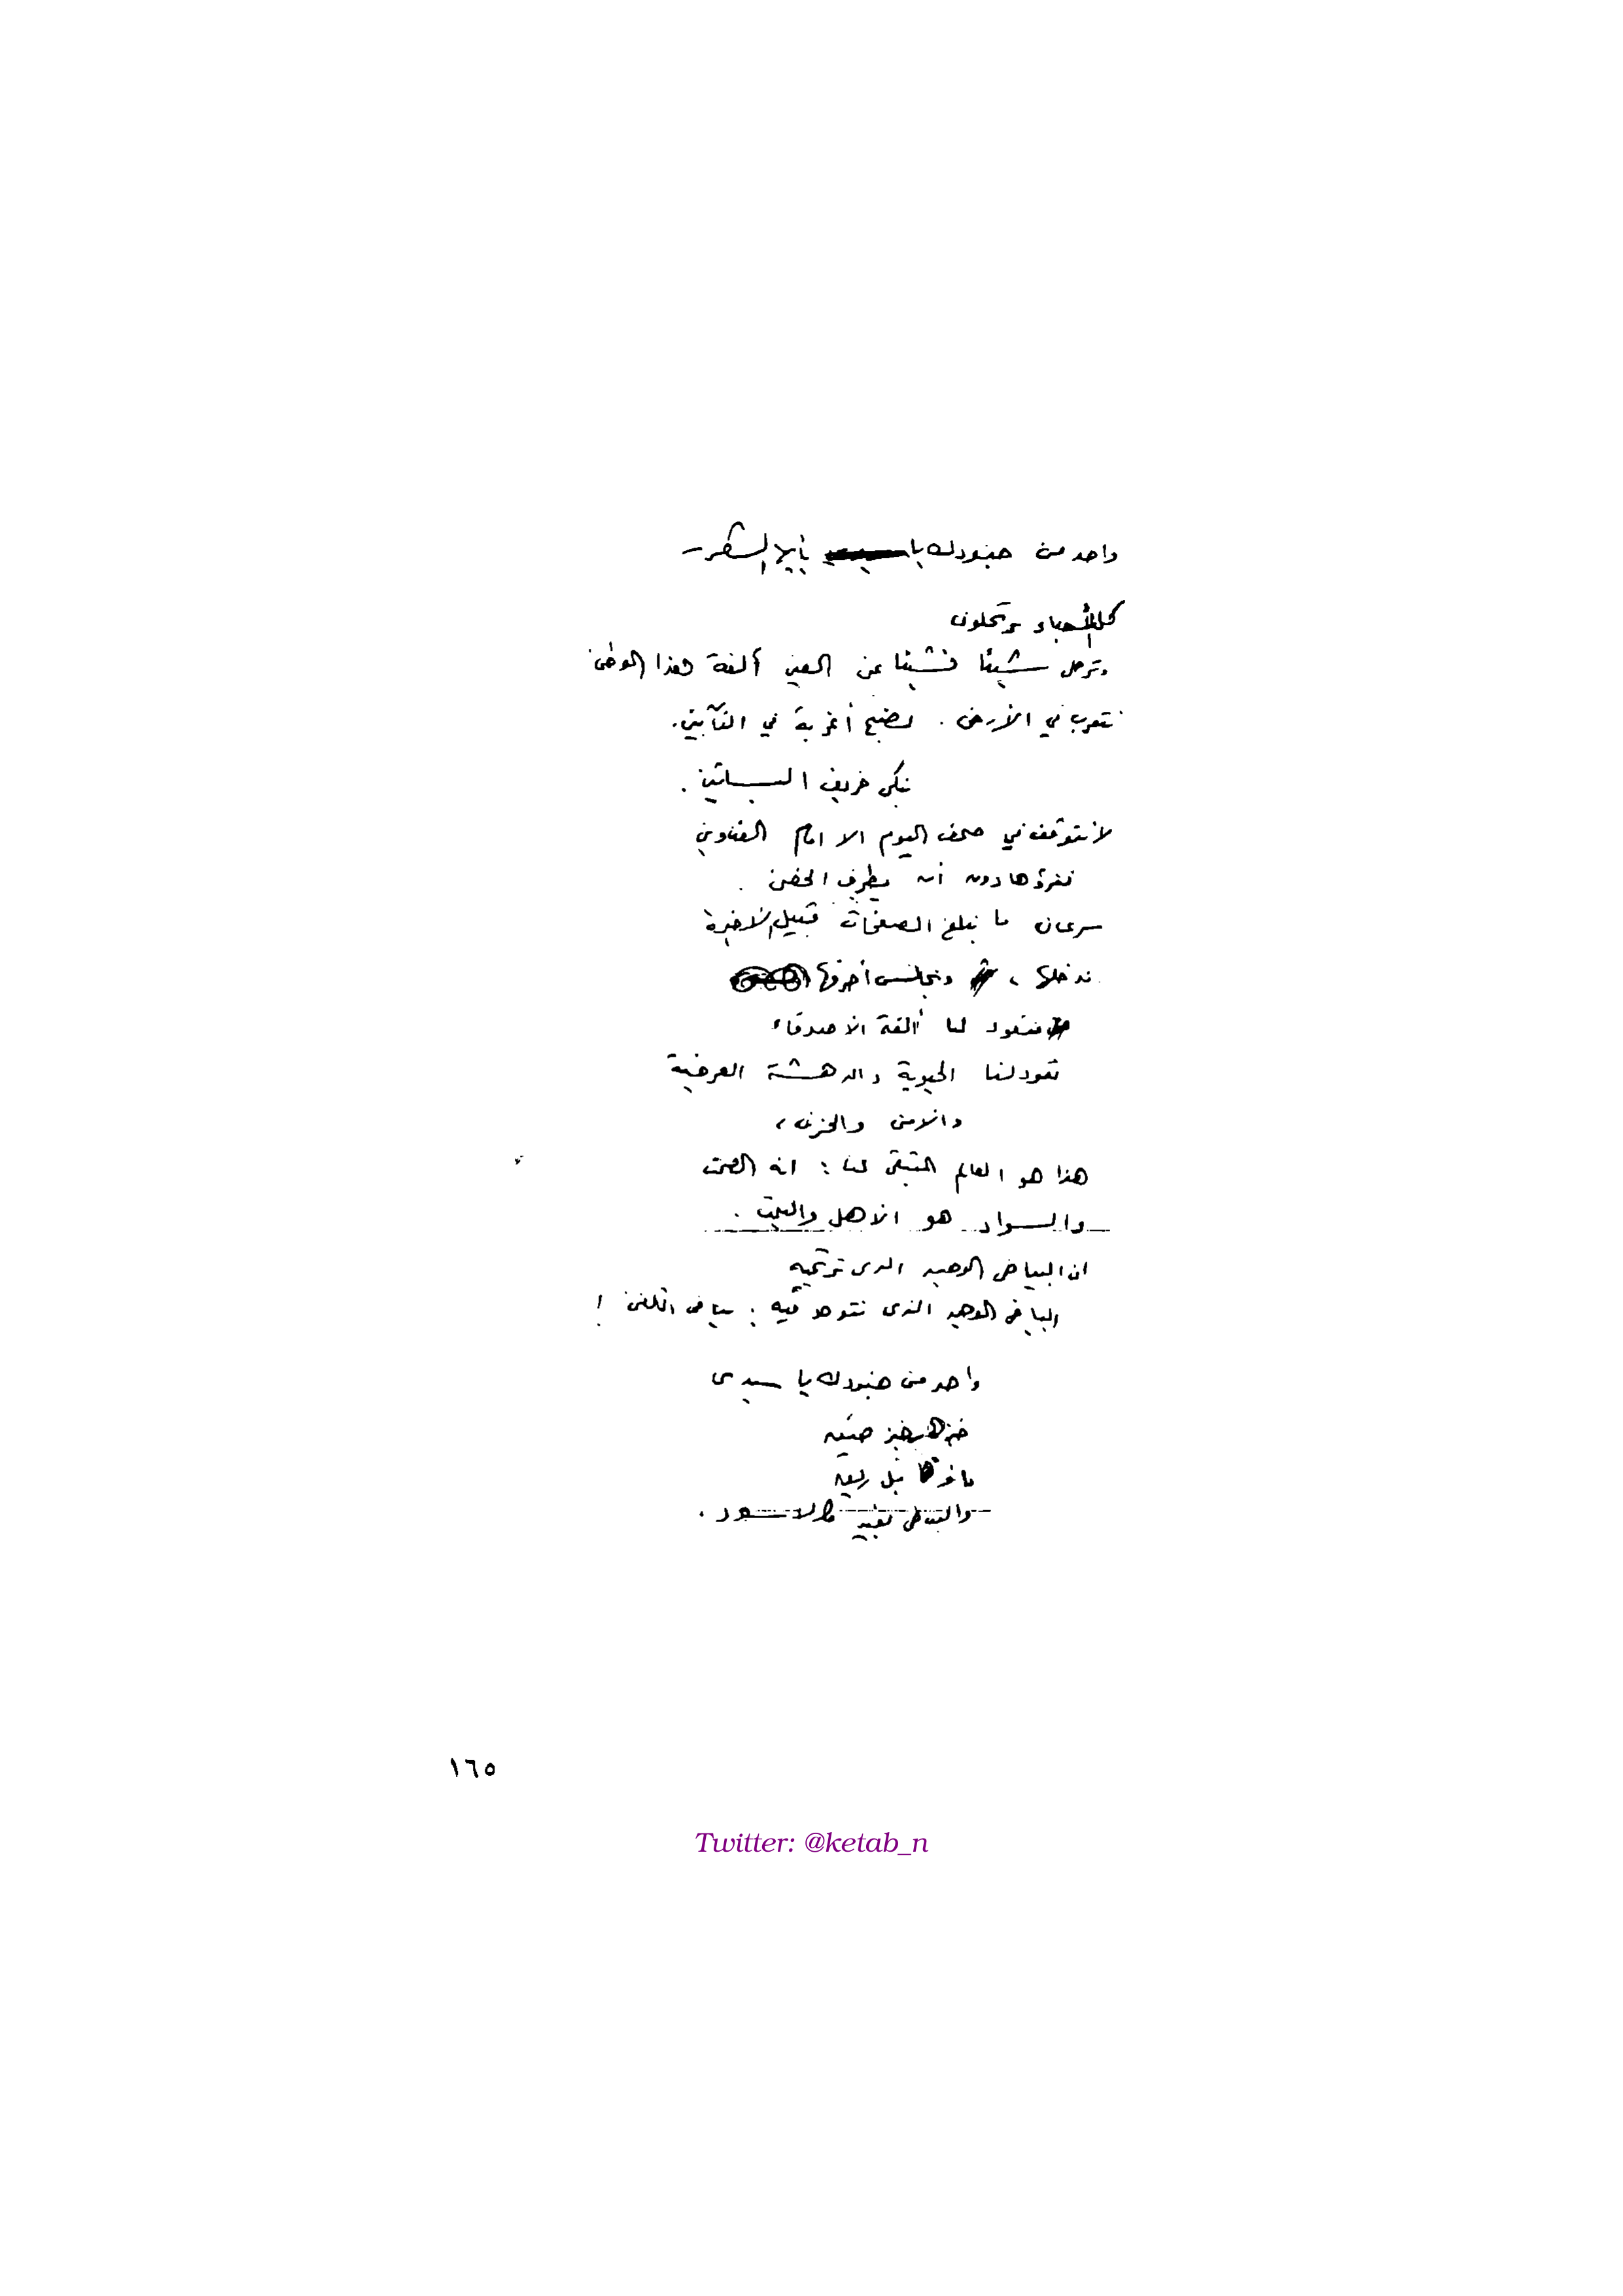 واحد من جنودك يا
كل الأحباء يرتحلون
وترحل شيئا فشيئا عن العين ألفة هذا الوطن
نتغرب في الأرض. نصبح أغربة في التآبين.
نبكي خريف البساتين.
لا نتوقف في صحف اليوم الا امام العناوين
نقرؤها دون أن يطرف الجفن.
سرعان ما نبلغ الصفحات قبيل الأخيرة
ندخلها، ونجالس أحرفها
فتعود لنا ألفة الأصدقاء
تعود لنا الحيوية والدهشة العرضية
والأمن والحزن،
هذا هو العالم المتبقي لنا: انه الصمت
والسواد هو الأهل والبيت.
ان البياض الوحيد الذي نرتجيه
البياض الوحيد الذي نتوحد فيه: بياض الكفن!
واحد من جنودك يا سيدي
خبز
١٦٥
Twitter: @ketab_n